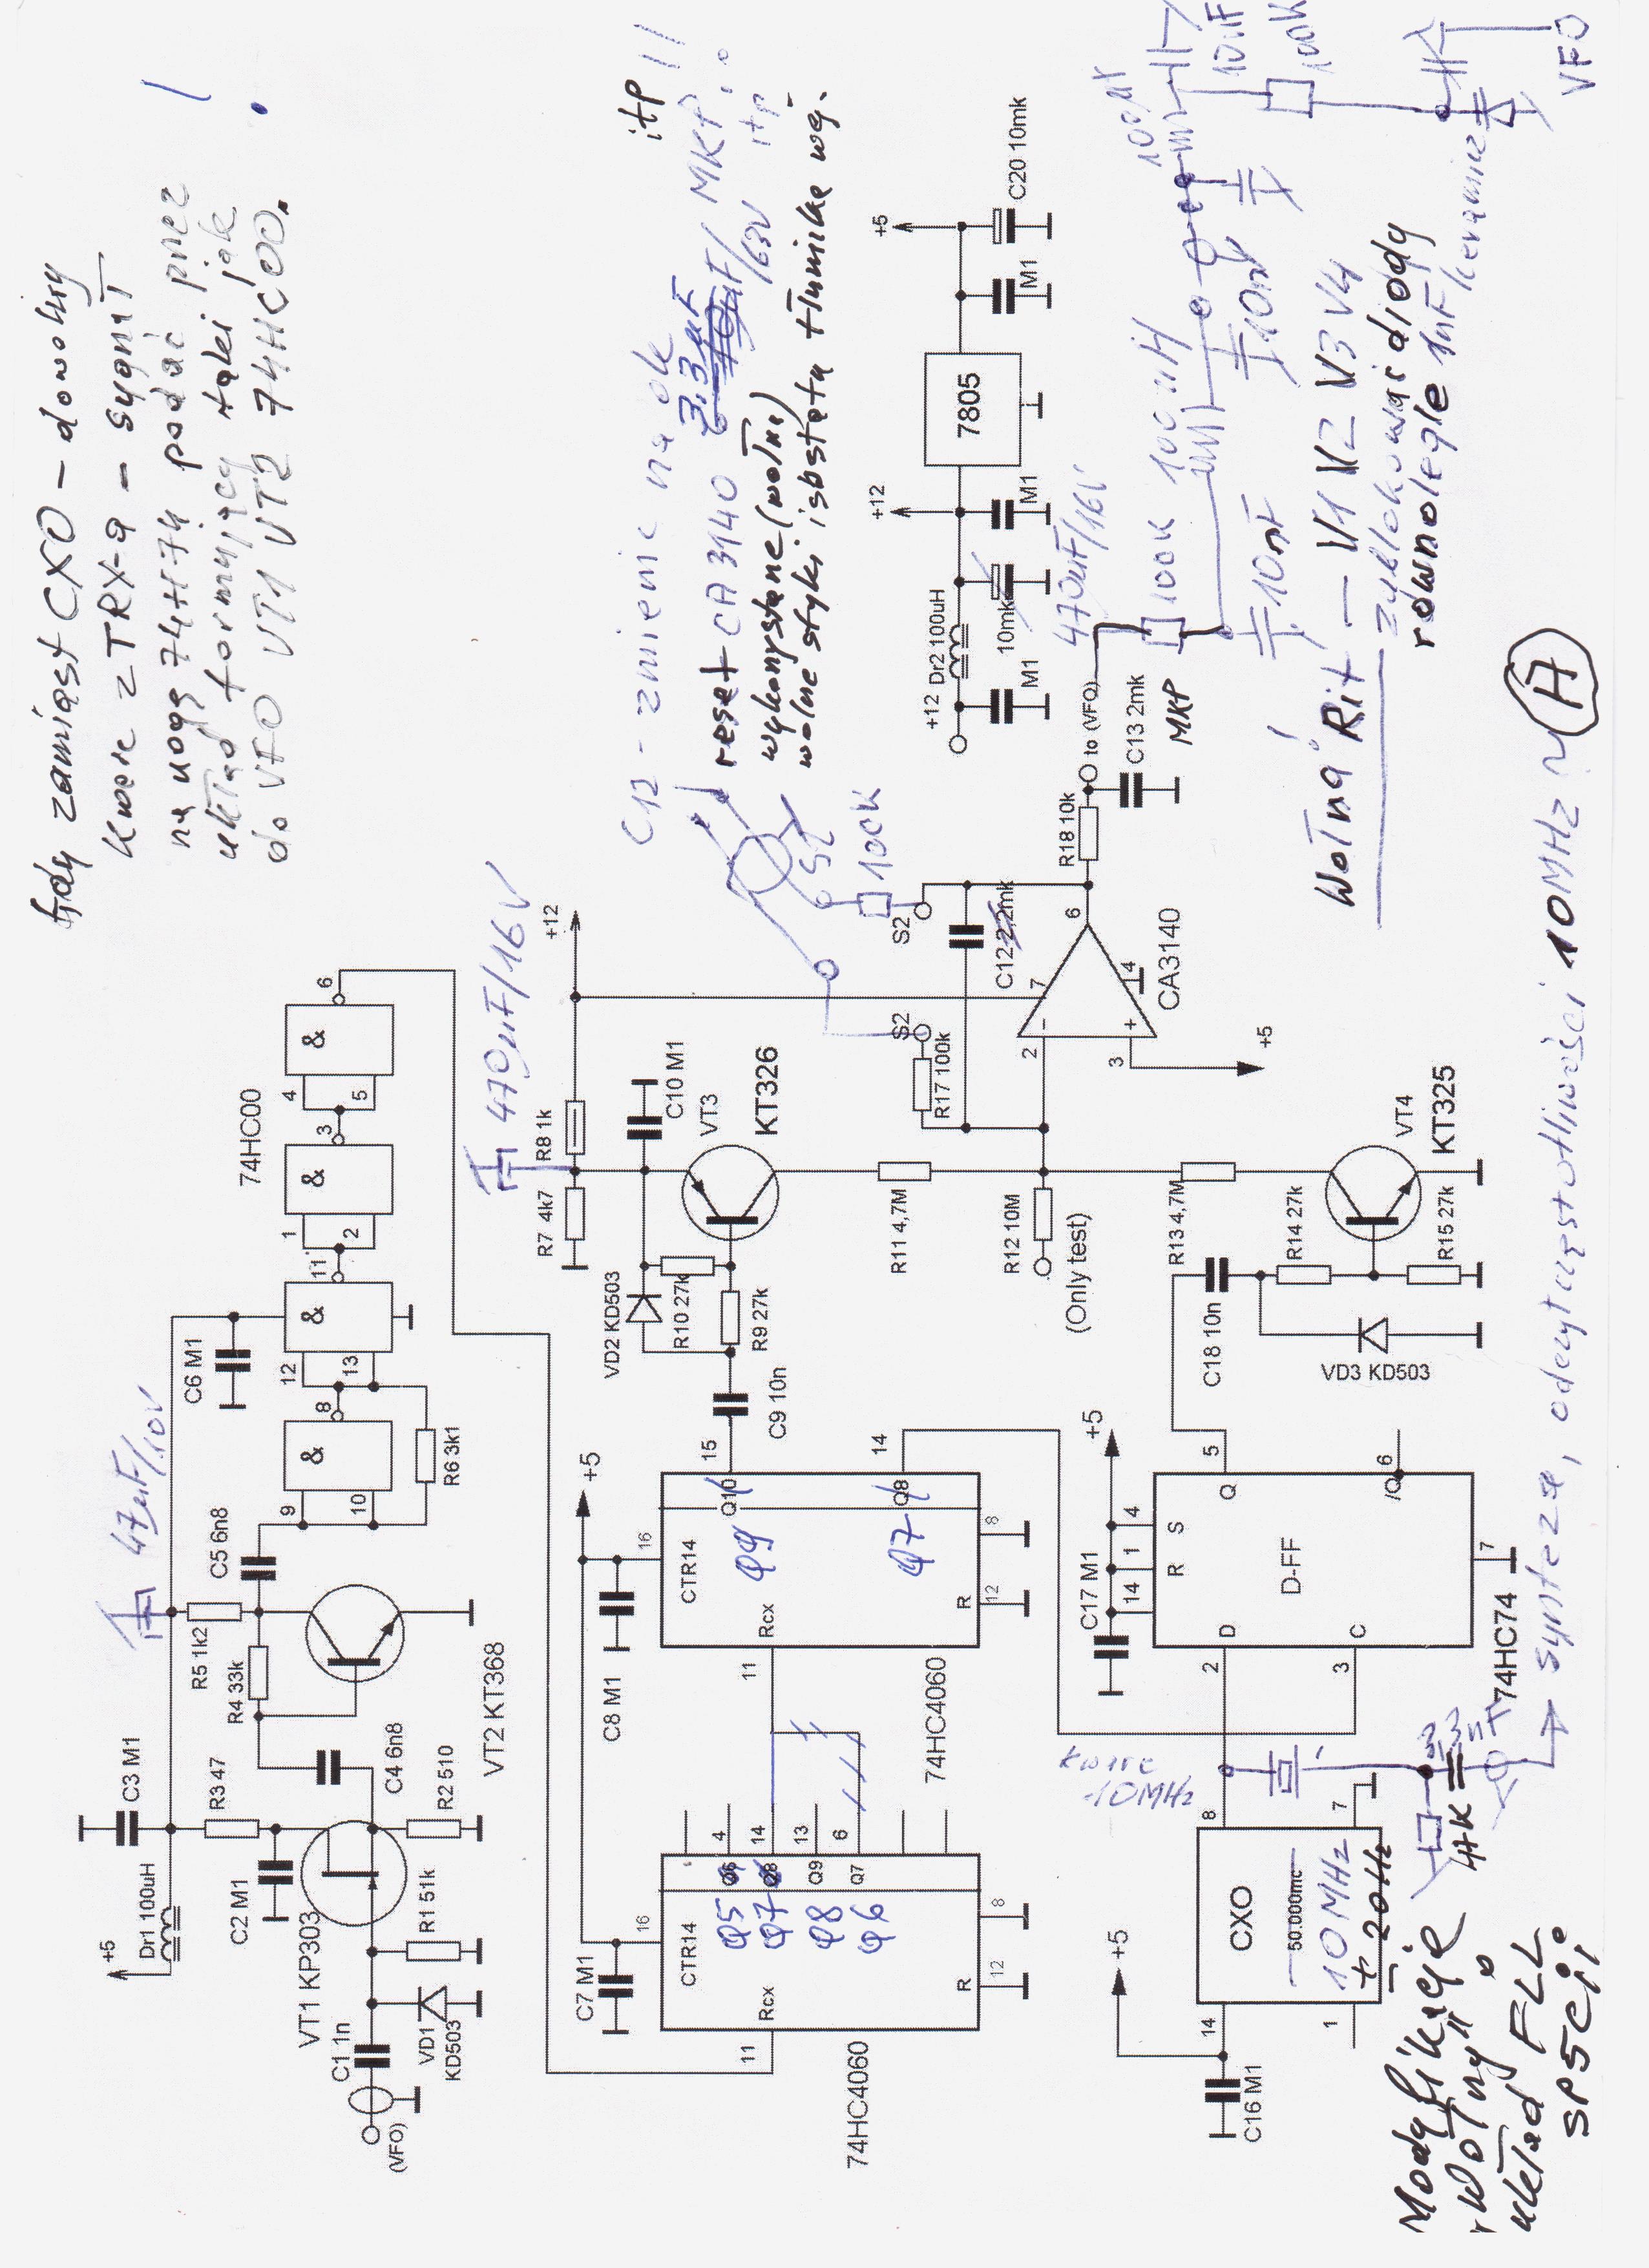 Gdy zamiast CXO - dowolny
kwarc z TRX-a - sygnał
na nogę 74H74 podać przez
układ formujący taki jak
do VFO VT1 VT2 74HC00.
!
C12 - zmienić na ok
3.3uF
MKP. itp !!
/63V itp
reset CA3140
wykorzystane (wolne)
wolne styki
+5
Dr1 100uH
C3 M1
47uF/10V
R3 47
C2 M1
VT1 KP303
C1 1n
(VFO)
VD1
KD503
R1 51k
R2 510
C4 6n8
R4 33k
R5 1k2
VT2 KT368
C5 6n8
R6 3k1
C6 M1
74HC00
9
10
&
8
12
13
&
11
1
2
&
3
4
5
&
6
470uF/16V
+12
R7 4k7
R8 1k
C10 M1
VD2 KD503
R10 27k
R9 27k
C9 10n
VT3
KT326
R11 4,7M
R12 10M
(Only test)
R13 4,7M
R17 100k
S2
S2
S2
100K
C12 2,2mk
2
3
7
4
6
CA3140
+5
R18 10k
to (VFO)
C13 2mk
MKP
+12
Dr2 100uH
M1
10mk
470uF/16V
M1
+12
7805
+5
M1
C20 10mk
100K
100uH
10nF
10nF
100uH
10uF
100K
VFO
"Wolna" Rit! - V1 V2 V3 V4
zablokować diody
równolegle 1nF/ceramicz
74HC4060
11
CTR14
Rcx
R
16
8
12
C7 M1
Q5
Q7
Q8
Q6
Q9
Q7
4
14
13
6
74HC4060
11
CTR14
Rcx
R
16
8
12
C8 M1
+5
Q10
Q9
Q8
Q7
15
14
C18 10n
R14 27k
R15 27k
VD3 KD503
VT4
KT325
C17 M1
+5
14
1
4
R
S
D
C
Q
/Q
D-FF
2
3
5
6
7
74HC74
+5
C16 M1
14
1
8
7
CXO
50.000mc
10MHz
± 20Hz
kwarc
~10MHz
3,3nF
synteza, od częstotliwości 10MHz ~ (A)
Modyfikacje
"wolny"
układ FLL
SP5CII